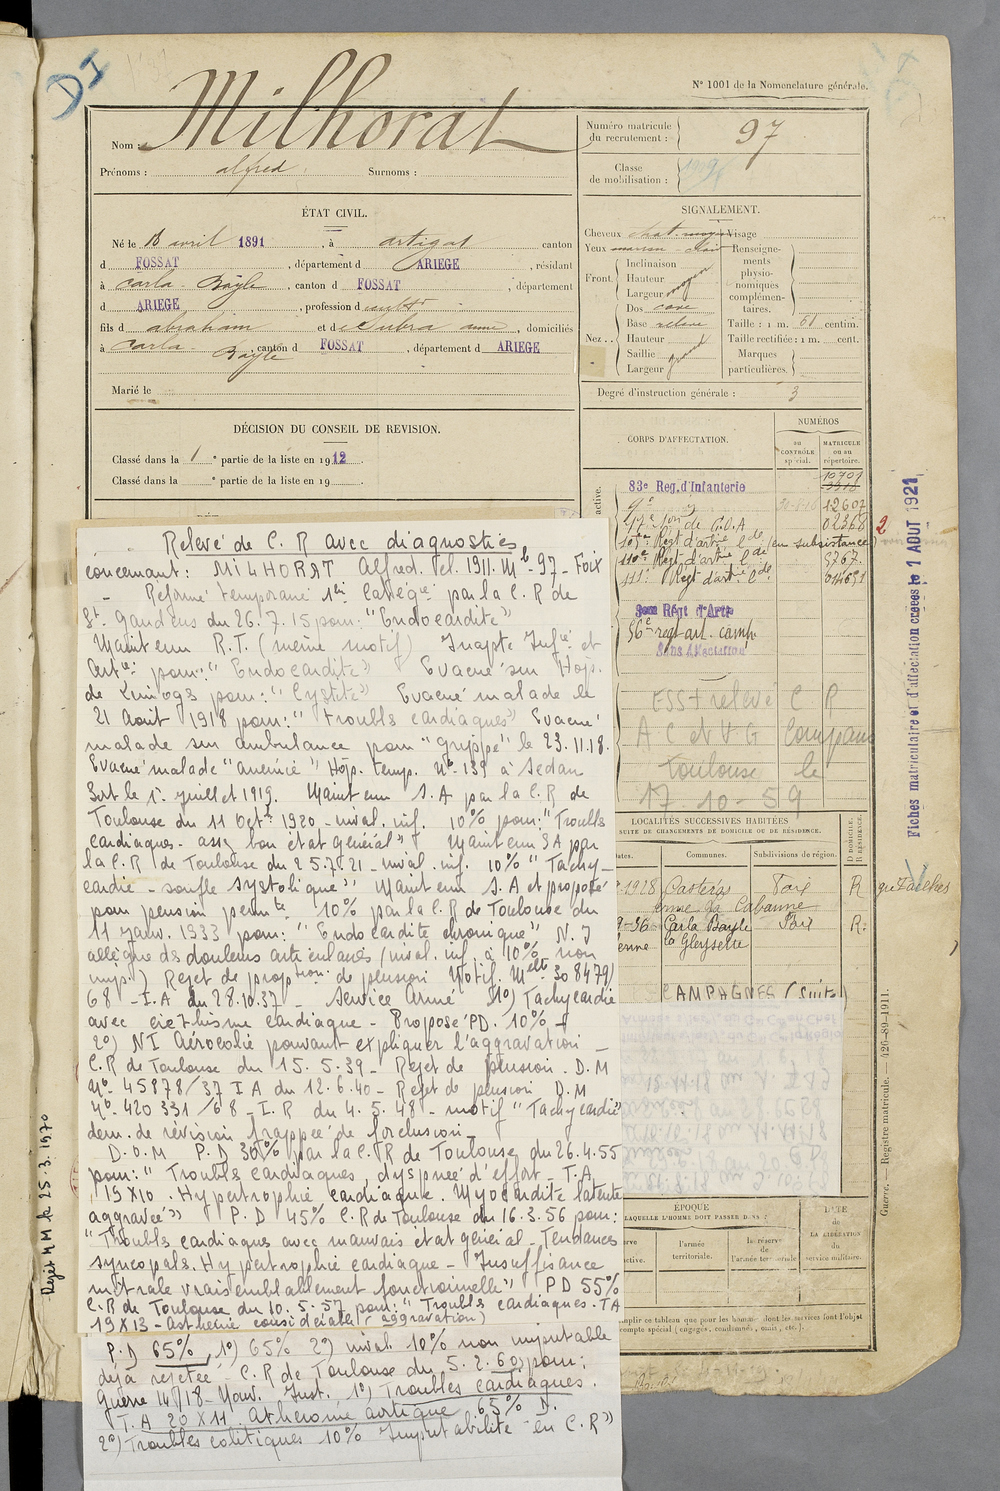 DI
N° 1001 de la Nomenclature générale.
Nom : Milhorat
Prénoms : alfred Surnoms :
Numéro matricule du recrutement : 97
Classe de mobilisation :
ÉTAT CIVIL.
Né le 18 avril 1891, à artigat canton
d FOSSAT, département d ARIEGE, résidant
à Carla Bayle, canton d FOSSAT, département
d ARIEGE, profession d cultr
fils d abraham et d Subra anne, domiciliés
à Carla Bayle, canton d FOSSAT, département d ARIEGE
Marié le
SIGNALEMENT.
Cheveux chat. moyen Visage
Yeux marron clair
Front. Inclinaison
Hauteur
Largeur moyen
Nez.. Dos cave
Base relevé
Hauteur
Saillie
Largeur grand
Renseignements physionomiques complémentaires.
Taille : 1 m. 61 centim.
Taille rectifiée : 1 m. cent.
Marques particulières.
Degré d'instruction générale : 3
DÉCISION DU CONSEIL DE REVISION.
Classé dans la 1e partie de la liste en 1912.
Classé dans la e partie de la liste en 19 .
CORPS D'AFFECTATION.
NUMÉROS
DU CONTRÔLE spécial.
MATRICULE OU AU répertoire.
active.
83e Reg. d'Infanterie 10701
9e 12607
17e son de C.O.A 02368
105e Regt d'artie lde (en subsistance) 2
110e Regt d'artie lde 5767
111e Regt d'artie lde
56e regt art. camp.
Sans Affectation
ESS+ relevé C R
A C et V G Compans
Toulouse le
17-10-59
Fiches matriculaire et d'affectation créées le 1 AOUT 1921
LOCALITÉS SUCCESSIVES HABITÉES
SUITE DE CHANGEMENTS DE DOMICILE OU DE RÉSIDENCE.
Dates. Communes. Subdivisions de région. D DOMICILE. R RÉSIDENCE.
1928 Casteras Foix R
ferme La Cabanne
9-36 Carla Bayle Foix R.
ferme la Gleysette
CAMPAGNES (Suite)
ÉPOQUE
LAQUELLE L'HOMME DOIT PASSER DANS :
l'armée territoriale.
la réserve de l'armée territoriale.
DATE de LA LIBÉRATION du service militaire.
mplir ce tableau que pour les hommes dont les services font l'objet
compte spécial (engagés, condamnés, omis, etc.).
Guerre. — Registre matricule. — 426-89-1911.
Rejet MM le 25-3-1970
Relevé de C. R avec diagnostics
concernant : MILHORAT Alfred. Cl. 1911. Mle - 97 - Foix
- Réformé temporaire 1ère Catégie par la C. R de
St Gaudens du 26.7.15 pour : "Endocardite"
Maintenu R.T. (même motif) Inapte Infie et
Artie pour : "Endocardite" Evacué sur Hop.
de Limoges pour : "Cystite" Evacué malade le
21 Août 1918 pour : "troubles cardiaques" Evacué
malade sur ambulance pour "grippe" le 23.11.18.
Evacué malade "anémie" Hôp. temp. No 139 à Sedan
Sort le 1er juillet 1919. Maintenu S.A par la C.R de
Toulouse du 11 Octe 1920 - inval. inf. 10% pour : "Troubles
cardiaques - assez bon état général" Maintenu SA par
la C.R de Toulouse du 25.7.21 - inval. inf. 10% "Tachy-
cardie - souffle systolique" Maintenu S.A et proposé
pour pension permte 10% par la C.R de Toulouse du
11 janv. 1933 pour : "Endocardite chronique" N.I
allègue des douleurs articulaires (inval. inf. à 10% non
imp.) Rejet de proption de pension Notif. Melle 308479/
68 - I.A du 28.10.37 - Service Armé 1o) Tachycardie
avec éréthisme cardiaque - Proposé PD. 10% -
2o) NI Aérocolie pouvant expliquer l'aggravation -
C.R de Toulouse du 15.5.39 - Rejet de pension - D.M
No 45878/37 I A du 12.6.40 - Rejet de pension D.M
No 420 331/68 - I.R du 4.5.48 - motif "Tachycardie"
dem. de révision frappée de forclusion -
D.O.M P.D 30% par la C.R de Toulouse du 26.4.55
pour : "Troubles cardiaques, dyspnée d'effort - T.A
19 X 10. Hypertrophie cardiaque. Myocardite latente
aggravée" P.D 45% C.R de Toulouse du 16.3.56 pour :
"Troubles cardiaques avec mauvais état général - Tendances
syncopals. Hypertrophie cardiaque - Insuffisance
mitrale vraisemblablement fonctionnelle" PD 55%
C.R de Toulouse du 10.5.57 pour : "Troubles cardiaques. TA
19 X 13 - asthénie considérable (aggravation)
P.D 65%, 1o) 65% 2o) inval. 10% non imputable
déjà rejetée - C.R de Toulouse du 5.2.60 pour :
Guerre 14/18 - Nouv. Inst. 1o) Troubles cardiaques.
T.A 20 X 11. athérome aortique 65% D.
2o) Troubles colitiques 10% Imputabilité en C.R"